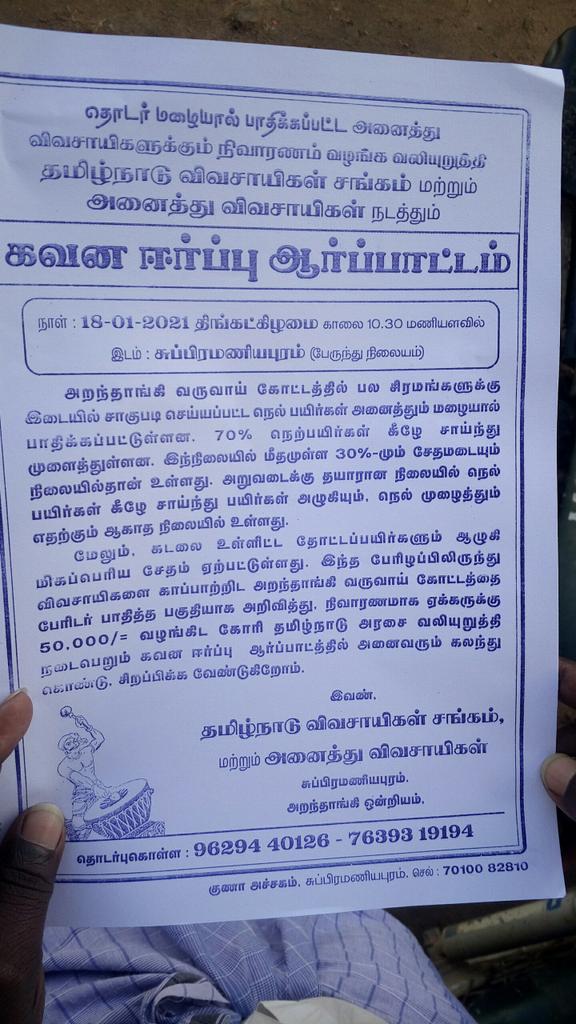 தொடர் மழையால் பாதிக்கப்பட்ட அனைத்து
விவசாயிகளுக்கும் நிவாரணம் வழங்க வலியுறுத்தி
தமிழ்நாடு விவசாயிகள் சங்கம் மற்றும்
அனைத்து விவசாயிகள் நடத்தும்
கவன ஈர்ப்பு ஆர்ப்பாட்டம்
நாள் : 18-01-2021 திங்கட்கிழமை காலை 10.30 மணியளவில்
இடம் : சுப்பிரமணியபுரம் (பேருந்து நிலையம்)
அறந்தாங்கி வருவாய் கோட்டத்தில் பல சிரமங்களுக்கு
இடையில் சாகுபடி செய்யப்பட்ட நெல் பயிர்கள் அனைத்தும் மழையால்
பாதிக்கப்பட்டுள்ளன. 70% நெற்பயிர்கள் கீழே சாய்ந்து
முளைத்துள்ளன. இந்நிலையில் மீதமுள்ள 30%-மும் சேதமடையும்
நிலையில்தான் உள்ளது. அறுவடைக்கு தயாரான நிலையில் நெல்
பயிர்கள் கீழே சாய்ந்து பயிர்கள் அழுகியும், நெல் முழைத்தும்
எதற்கும் ஆகாத நிலையில் உள்ளது.
மேலும், கடலை உள்ளிட்ட தோட்டப்பயிர்களும் ஆழுகி
மிகப்பெரிய சேதம் ஏற்பட்டுள்ளது. இந்த பேரிழப்பிலிருந்து
விவசாயிகளை காப்பாற்றிட அறந்தாங்கி வருவாய் கோட்டத்தை
பேரிடர் பாதித்த பகுதியாக அறிவித்து, நிவாரணமாக ஏக்கருக்கு
50,000/= வழங்கிட கோரி தமிழ்நாடு அரசை வலியுறுத்தி
நடைபெறும் கவன ஈர்ப்பு ஆர்ப்பாட்த்தில் அனைவரும் கலந்து
கொண்டு, சிறப்பிக்க வேண்டுகிறோம்.
இவண்,
தமிழ்நாடு விவசாயிகள் சங்கம்,
மற்றும் அனைத்து விவசாயிகள்
சுப்பிரமணியபுரம்.
அறந்தாங்கி ஒன்றியம்,
தொடர்புகொள்ள : 96294 40126 - 76393 19194
குணா அச்சகம், சுப்பிரமணியபுரம், செல் : 70100 82810